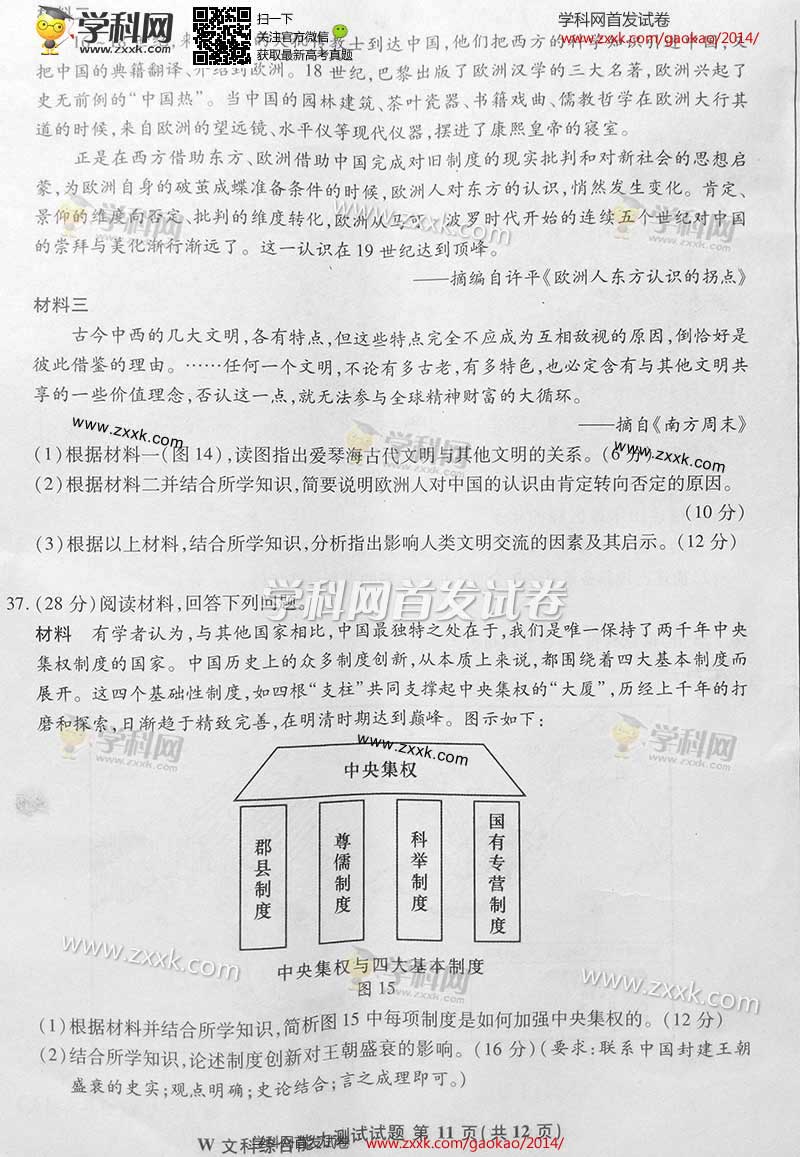 材料二
学科网
WWW.ZXXK.COM
扫一下
关注官方微信
获取最新高考真题
学科网首发试卷
www.zxxk.com/gaokao/2014/
传教士到达中国,他们把西方的
把中国的典籍翻译、介绍到欧洲。18 世纪,巴黎出版了欧洲汉学的三大名著,欧洲兴起了
史无前例的“中国热”。当中国的园林建筑、茶叶瓷器、书籍戏曲、儒教哲学在欧洲大行其
道的时候,来自欧洲的望远镜、水平仪等现代仪器,摆进了康熙皇帝的寝室。
正是在西方借助东方、欧洲借助中国完成对旧制度的现实批判和对新社会的思想启
蒙,为欧洲自身的破茧成蝶准备条件的时候,欧洲人对东方的认识,悄然发生变化。肯定、
景仰的维度向否定、批判的维度转化,欧洲从马可·波罗时代开始的连续五个世纪对中国
的崇拜与美化渐行渐远了。这一认识在 19 世纪达到顶峰。
——摘编自许平《欧洲人东方认识的拐点》
材料三
古今中西的几大文明,各有特点,但这些特点完全不应成为互相敌视的原因,倒恰好是
彼此借鉴的理由。……任何一个文明,不论有多古老,有多特色,也必定含有与其他文明共
享的一些价值理念,否认这一点,就无法参与全球精神财富的大循环。
——摘自《南方周末》
(1)根据材料一(图 14),读图指出爱琴海古代文明与其他文明的关系。(6 分)
(2)根据材料二并结合所学知识,简要说明欧洲人对中国的认识由肯定转向否定的原因。
(10 分)
(3)根据以上材料,结合所学知识,分析指出影响人类文明交流的因素及其启示。(12 分)
学科网首发试卷
37.(28 分)阅读材料,回答下列问题。
材料 有学者认为,与其他国家相比,中国最独特之处在于,我们是唯一保持了两千年中央
集权制度的国家。中国历史上的众多制度创新,从本质上来说,都围绕着四大基本制度而
展开。这四个基础性制度,如四根“支柱”共同支撑起中央集权的“大厦”,历经上千年的打
磨和探索,日渐趋于精致完善,在明清时期达到巅峰。图示如下:
www.zxxk.com
中央集权
郡县制度
尊儒制度
科举制度
国有专营制度
中央集权与四大基本制度
图 15
(1)根据材料并结合所学知识,简析图 15 中每项制度是如何加强中央集权的。(12 分)
(2)结合所学知识,论述制度创新对王朝盛衰的影响。(16 分)(要求:联系中国封建王朝
盛衰的史实;观点明确;史论结合;言之成理即可。)
W 文科综合能力测试试题 第 11 页(共 12 页)
学科网首发试卷
www.zxxk.com/gaokao/2014/